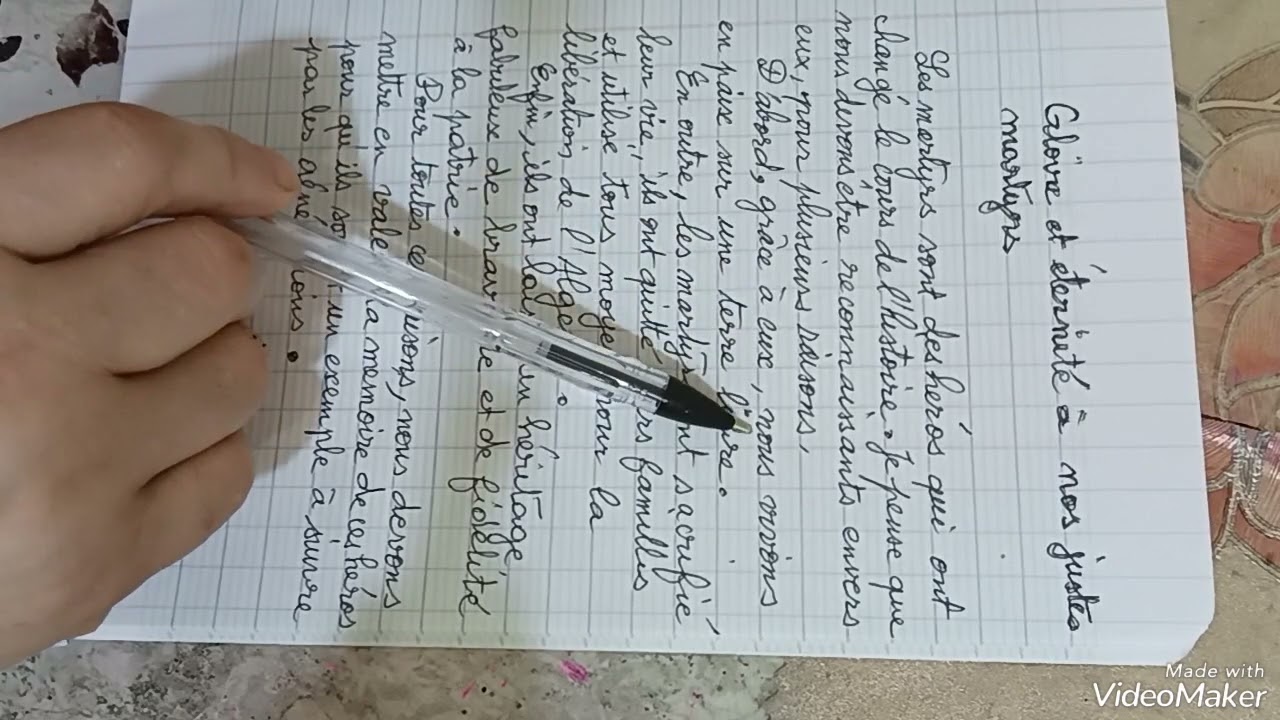 Gloire et éternité à nos justes
martyrs
Les martyrs sont des héros qui ont
changé le cours de l'histoire. Je pense que
nous devons être reconnaissants envers
eux, pour plusieurs raisons.
D'abord, grâce à eux, nous vivons
en paix sur une terre libre.
En outre, les martyrs ont sacrifié
leur vie, ils ont quitté leurs familles
et utilisé tous pour la
libération de l'Algé .
Enfin, ils ont un héritage
fabuleux de et de fidélité
à la patrie.
Pour toutes ces raisons, nous devons
mettre en la mémoire de ces héros
pour qu'ils un exemple à suivre
par les .
Made with
VideoMaker